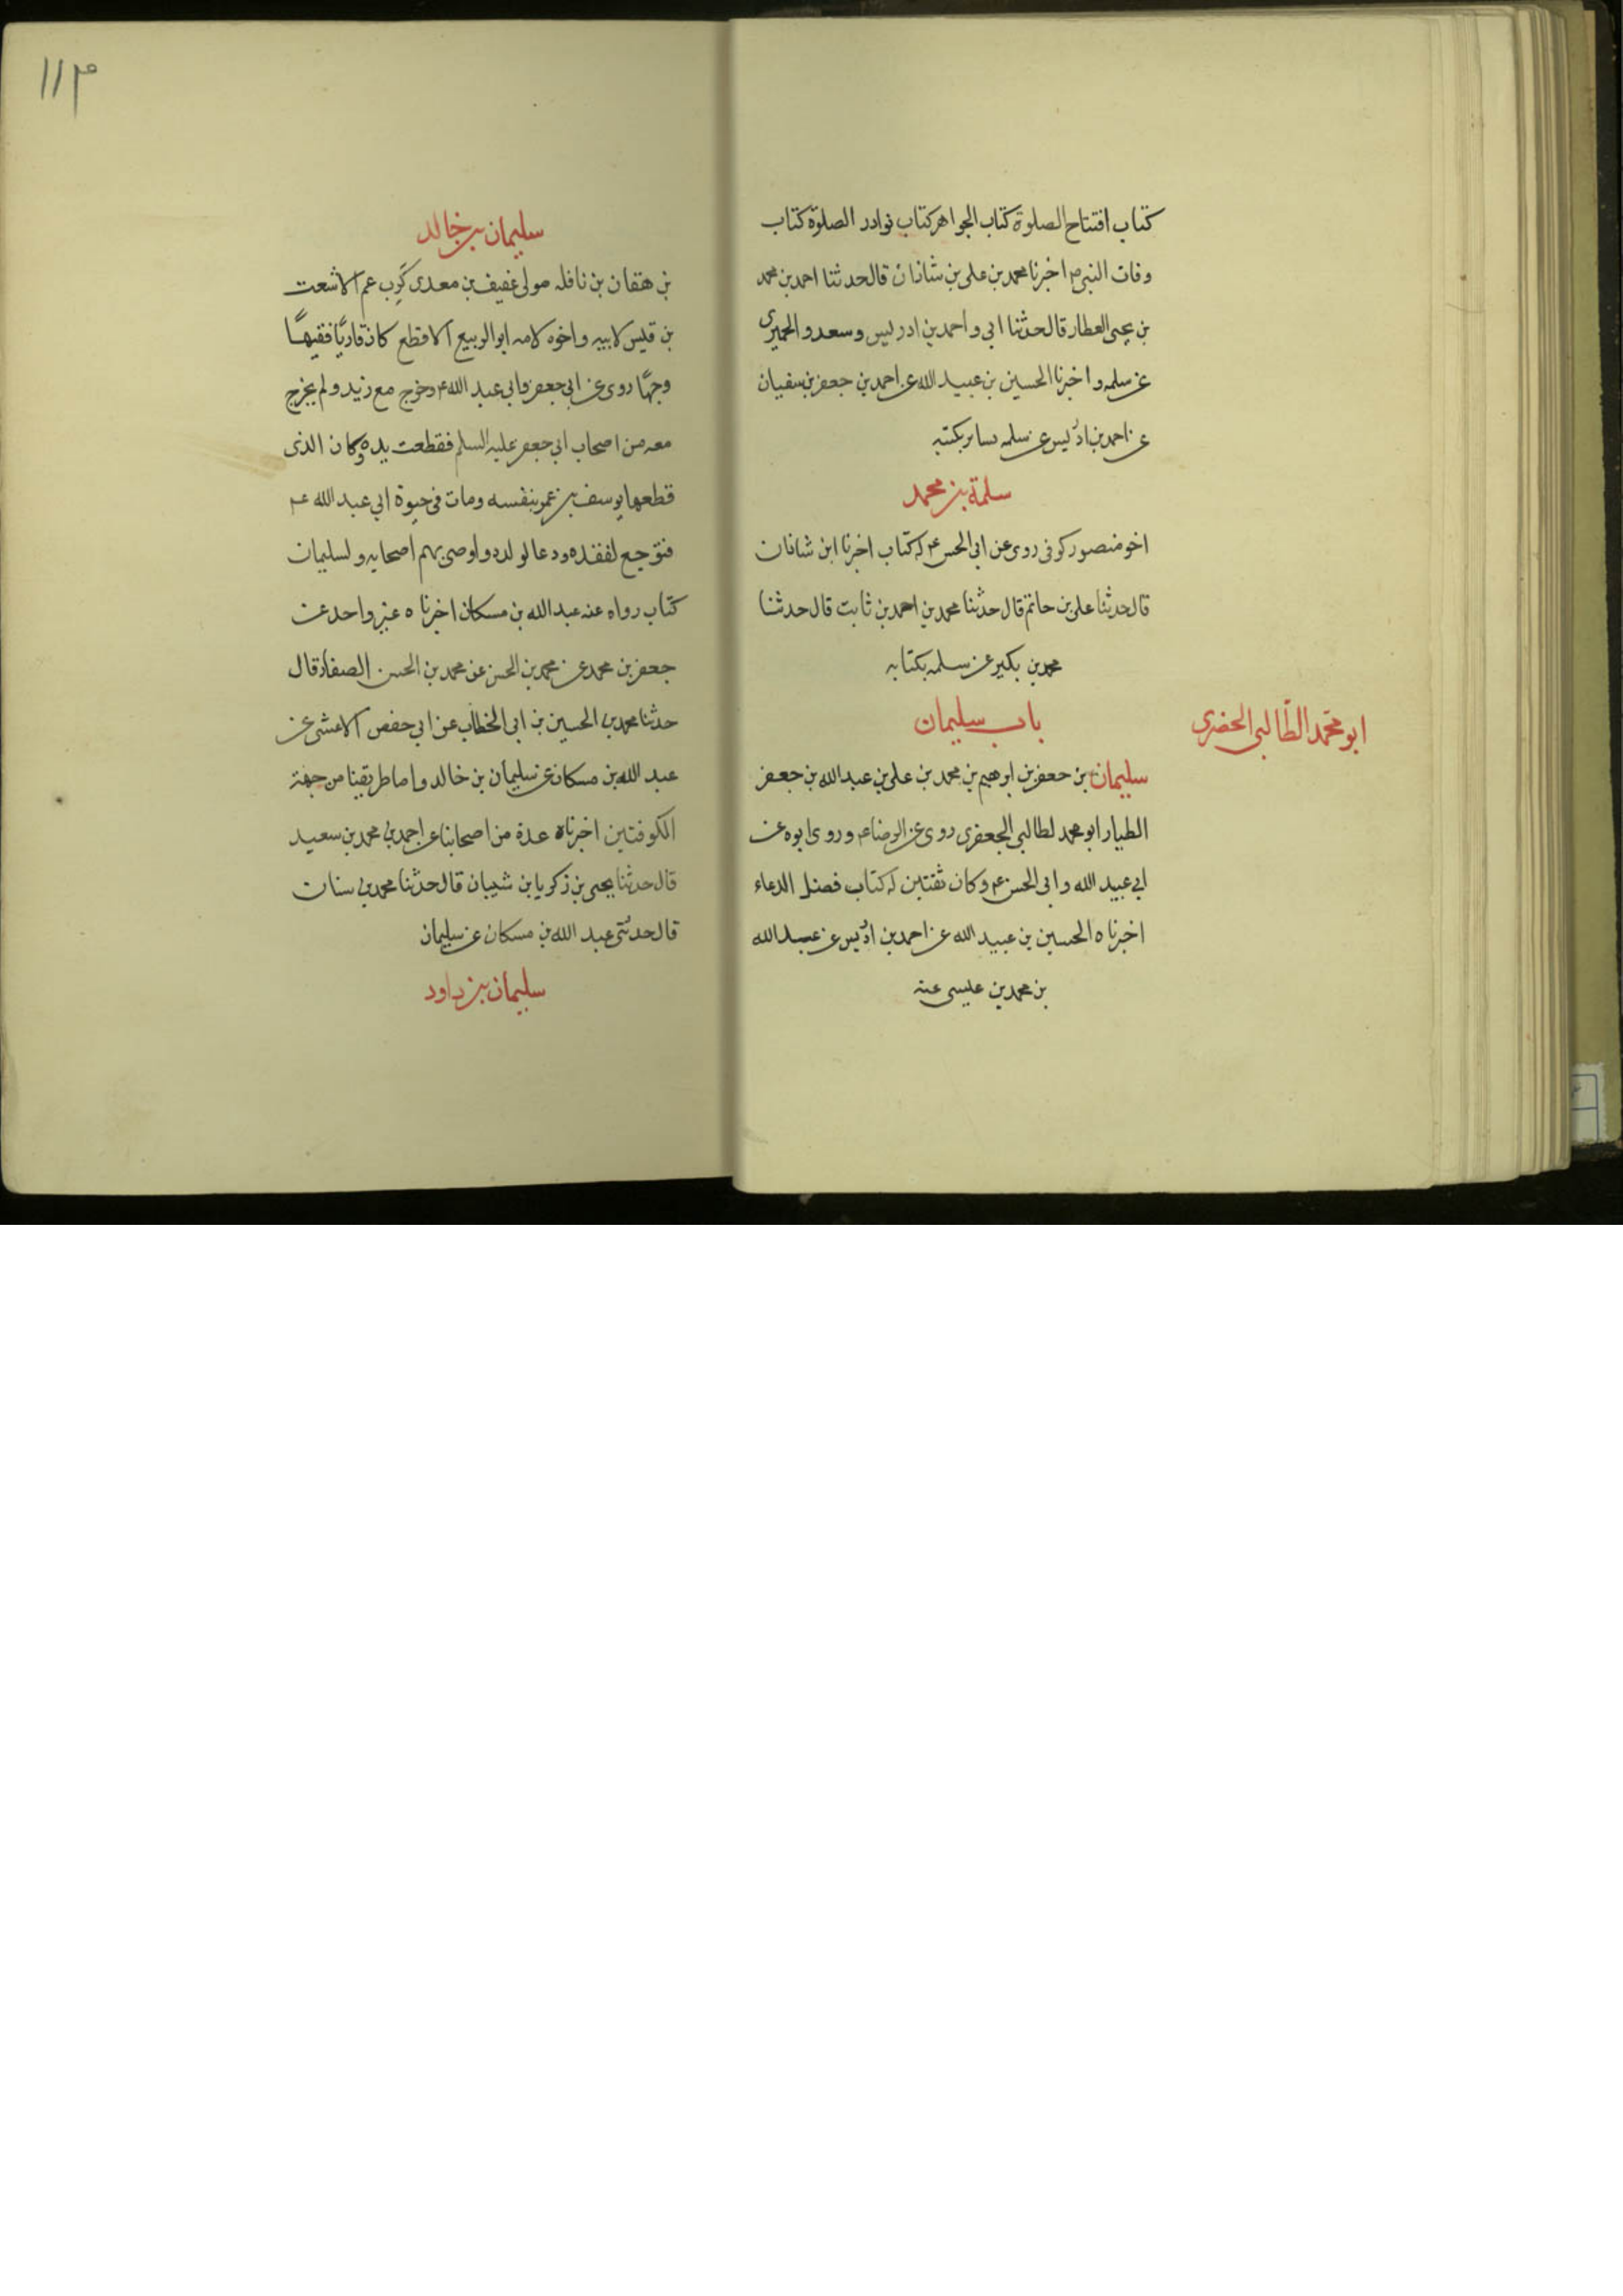 كتاب افتتاح الصلوة كتاب الجواهر كتاب نوادر الصلوة كتاب
وفات النبي ص اخبرنا محمد بن على بن شاذان قال حدثنا احمد بن محمد
بن يحيى العطار قال حدثنا ابي و احمد بن ادريس وسعد و الحميرى
عن سلمه و اخبرنا الحسين بن عبيد الله عن احمد بن جعفر بن سفيان
عن احمد بن ادريس عن سلمه بسائر كتبه
سلمة بن محمد
اخو منصور كوفى روى عن ابى الحسن ع له كتاب اخبرنا ابن شاذان
قال حدثنا على بن حاتم قال حدثنا محمد بن احمد بن ثابت قال حدثنا
محمد بن بكير عن سلمه بكتابه
باب سليمان
ابو محمد الطّالبى الحضرى
سليمان بن جعفر بن ابرهيم بن محمد بن على بن عبد الله بن جعفر
الطيار ابو محمد لطالبى الجعفرى روى عن الرضا ع و روى ابوه عن
ابى عبيد الله و ابى الحسن ع وكان ثقتين له كتاب فضل الدعاء
اخبرناه الحسين بن عبيد الله عن احمد بن ادريس عن عبد الله
بن محمد بن عيسى عنه
١١٣
سليمان بن خالد
بن هقان بن نافله مولى عفيف بن معدى كَرِب عم الاشعت
بن قيس لابيه و اخوه لامه ابو الربيع الاقطع كان قاريًا فقيهًا
وجهًا روى عن ابى جعفر و ابى عبد الله ع و خرج مع زيد و لم يخرج
معه من اصحاب ابى جعفر عليه السلم فقطعت يده وكان الذى
قطعها يوسف بن عمر بنفسه ومات فى حيوة ابي عبد الله ع
فتوجع لفقده ودعا لولده و اوصى بهم اصحابه ولسليمان
كتاب رواه عنه عبد الله بن مسكان اخبرناه غير واحد عن
جعفر بن محمد عن محمد بن الحسن عن محمد بن الحسن الصفار قال
حدثنا محمد بن الحسين بن ابى الخطاب عن ابى حفص الاعشى عن
عبد الله بن مسكان عن سليمان بن خالد و اما طريقنا من جهة
الكوفتين اخبرناه عدة من اصحابنا عن احمد بن محمد بن سعيد
قال حدثنا يحيى بن زكريا بن شيبان قال حدثنا محمد بن سنان
قال حدثنى عبد الله بن مسكان عن سليمان
سليمان بن داود